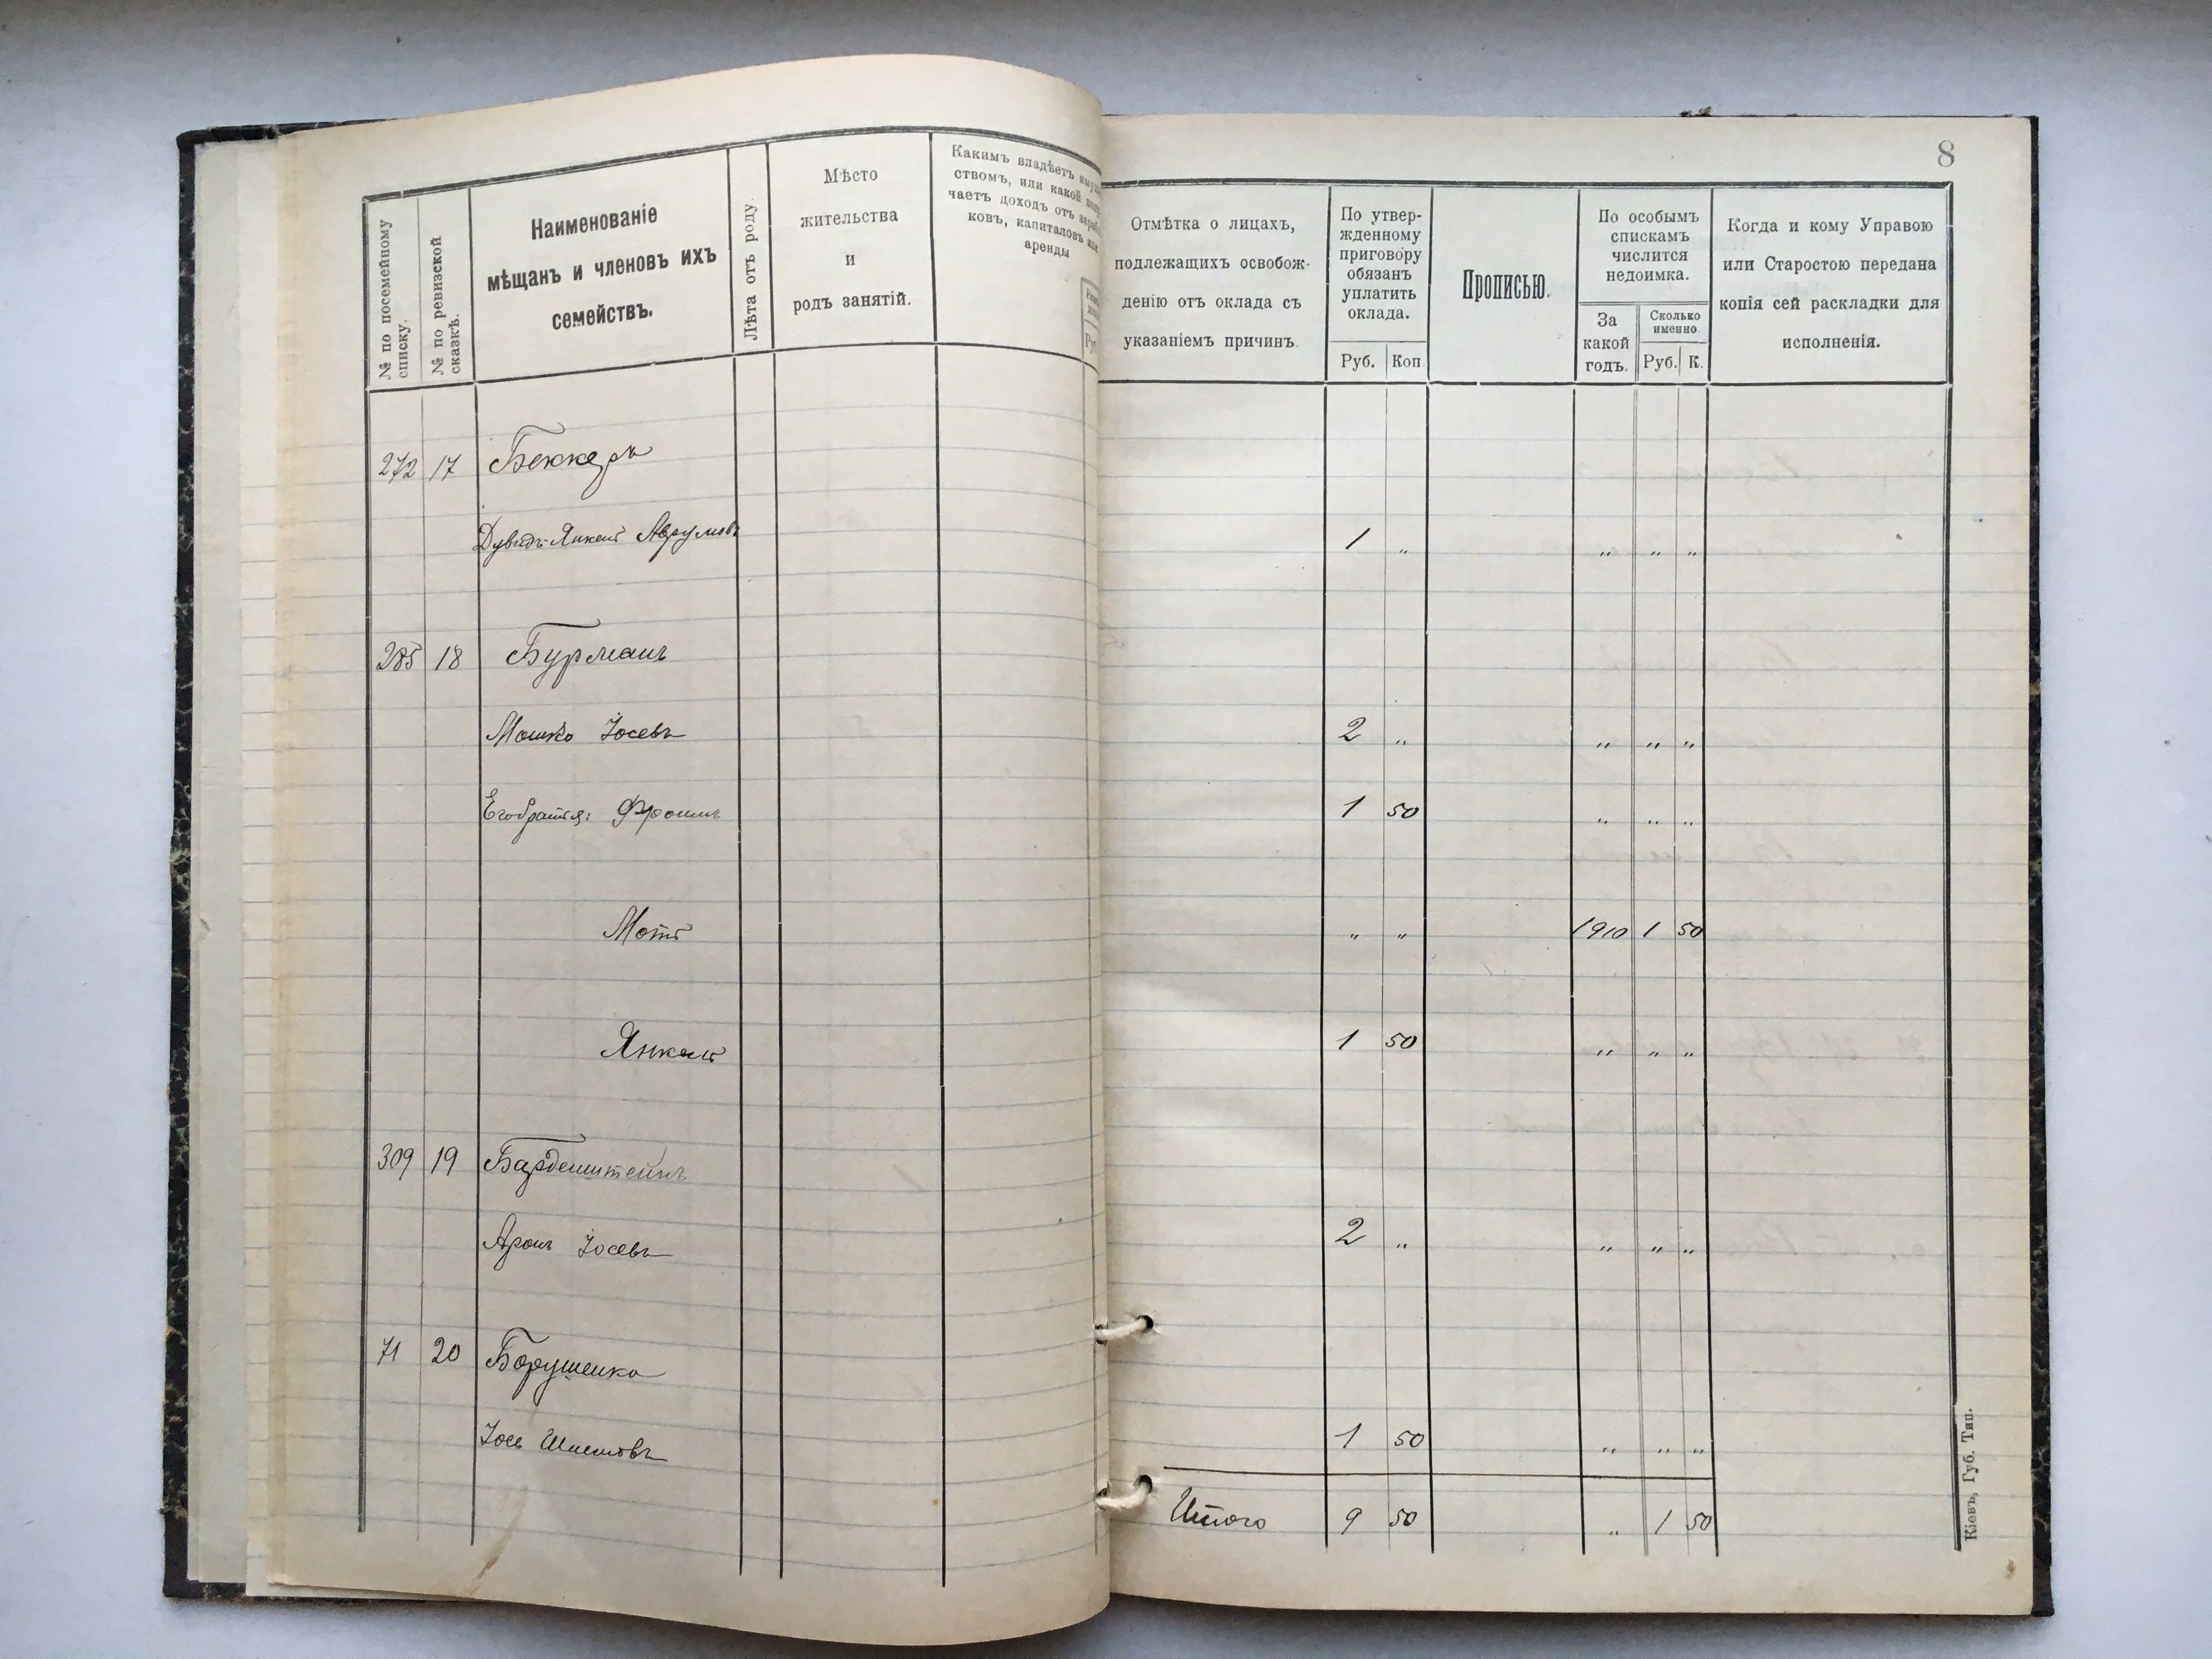 8
№ по посемейному
списку.
№ по ревизской
сказкѣ.
Наименованіе
мѣщанъ и членовъ ихъ
семействъ.
Лѣта отъ роду.
Мѣсто
жительства
и
родъ занятій.
Какимъ владѣетъ
ствомъ, или какой
чаетъ доходъ отъ
ковъ, капиталовъ или
аренды
Руб
Отмѣтка о лицахъ,
подлежащихъ освобож-
денію отъ оклада съ
указаніемъ причинъ.
По утвер-
жденному
приговору
обязанъ
уплатить
оклада.
Руб. Коп.
Прописью.
По особымъ
спискамъ
числится
недоимка.
За
какой
годъ.
Сколько
именно.
Руб. К.
Когда и кому Управою
или Старостою передана
копія сей раскладки для
исполненія.
272 17 Беккеръ
Дувидъ-Янкель Аврумовъ 1 „ „ „ „
285 18 Бурманъ
Мошко Іосевъ 2 „ „ „ „
Его братья: Фроимъ 1 50 „ „ „
Мотя „ „ 1910 1 50
Янкель 1 50 „ „ „
309 19 Барденштейнъ
Аронъ Іосевъ 2 „ „ „ „
71 20 Борушенко
Іось 1 50 „ „ „
Итого 9 50 „ 1 50
Кіевъ, Губ. Тип.